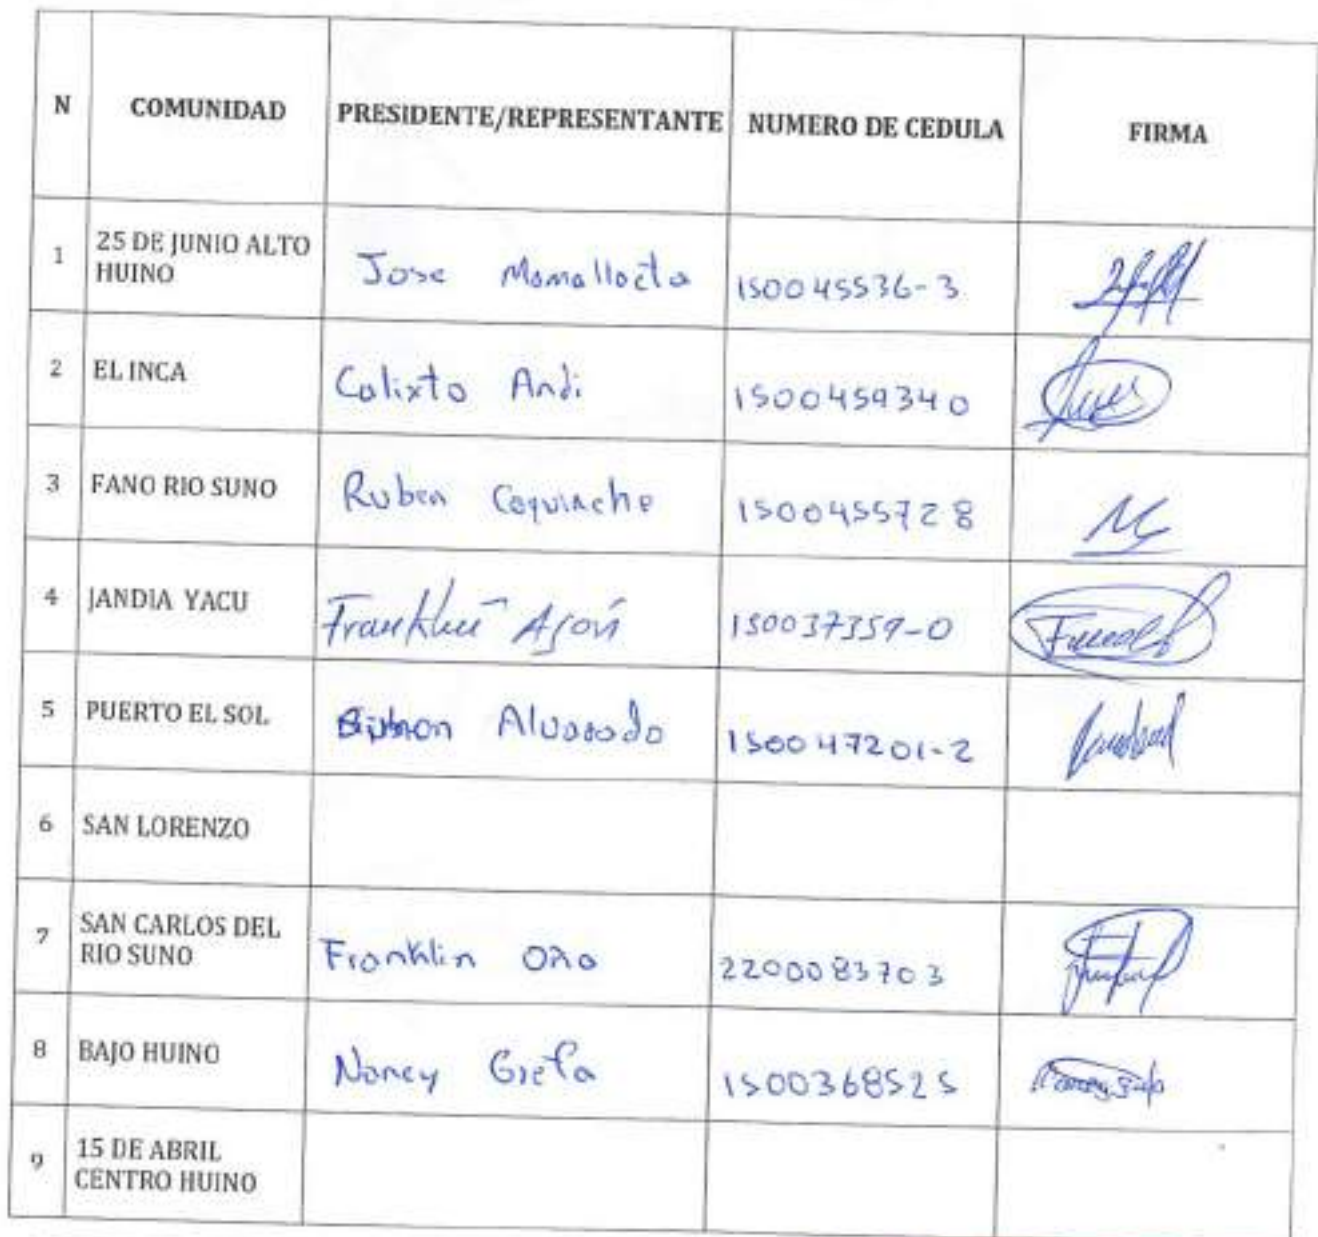 N COMUNIDAD PRESIDENTE/REPRESENTANTE NUMERO DE CEDULA FIRMA
1 25 DE JUNIO ALTO HUINO Jose Mamallacta 150045536-3
2 EL INCA Calixto Andi 1500459340
3 FANO RIO SUNO Ruben Coquinche 1500455728
4 JANDIA YACU Franklin 150037359-0
5 PUERTO EL SOL Alvarado 150047201-2
6 SAN LORENZO
7 SAN CARLOS DEL RIO SUNO Franklin Oña 2200083703
8 BAJO HUINO Nancy Grefa 1500368525
9 15 DE ABRIL CENTRO HUINO